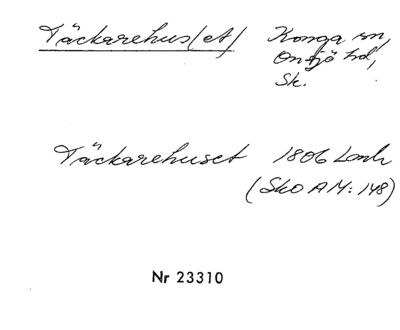 Täckarehus(et) Konga sn,
Onsjö hd,
Sk.
Täckarehuset 1806 Lmh
(Sko AM: 148)
Nr 23310